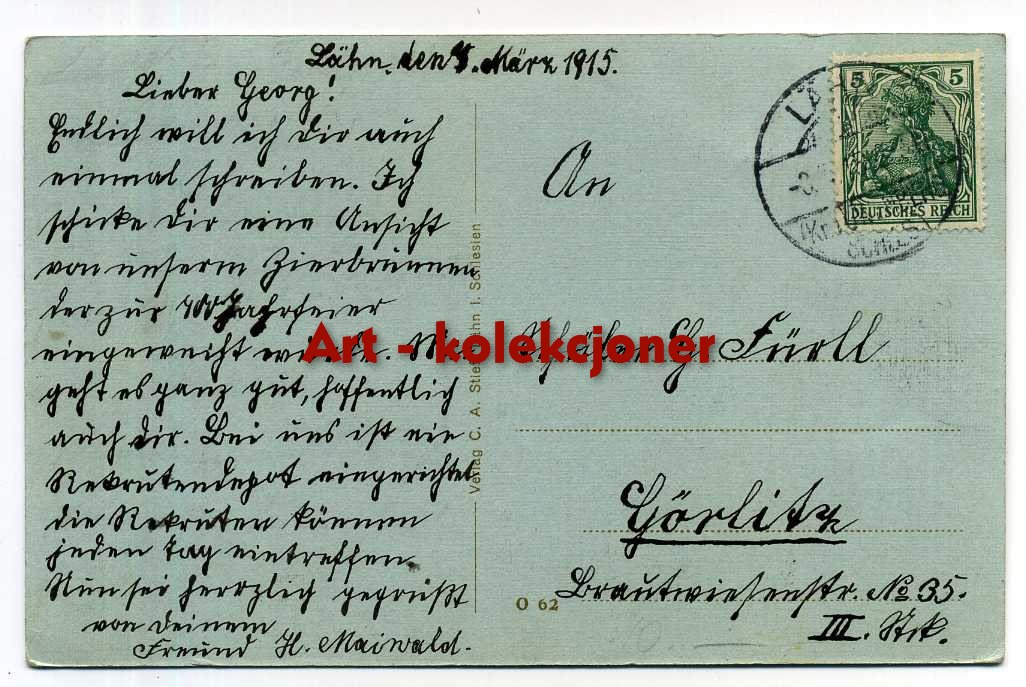 Lähn, den 4. März 1915.
Lieber Georg!
Endlich will ich Dir auch
einmal schreiben. Ich
schicke Dir eine Ansicht
von unserm Zierbrunnen
der zur 700 Jahrfeier
eingeweiht wurde. Mir
geht es ganz gut, hoffentlich
auch Dir. Bei uns ist ein
Rekrutendepot eingerichtet
die Rekruten können
jeden Tag eintreffen.
Nun sei herzlich gegrüßt
von Deinem
Freund H. Maiwald.
Verlag C. A. Stief, Lähn i. Schlesien
O 62
5 5
DEUTSCHES REICH
LÄHN
An
Schüler Fürll
Görlitz
Brautwiesenstr. No 35.
III. Stck.
Art - kolekcjoner